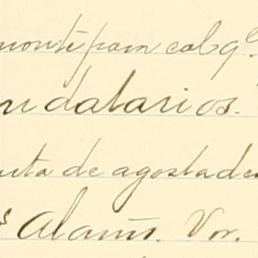 monte para cabg.
ndatarios.
uta de agostade
s Alamñ. Vor.